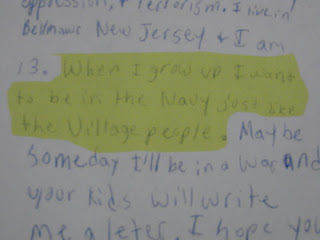 oppression, & terrorism. I live in
Bellmawr New Jersey & I am
13. When I grow up I want
to be in the Navy just like
the Village people. Maybe
someday I'll be in a war and
your kids will write
me a leter. I hope you